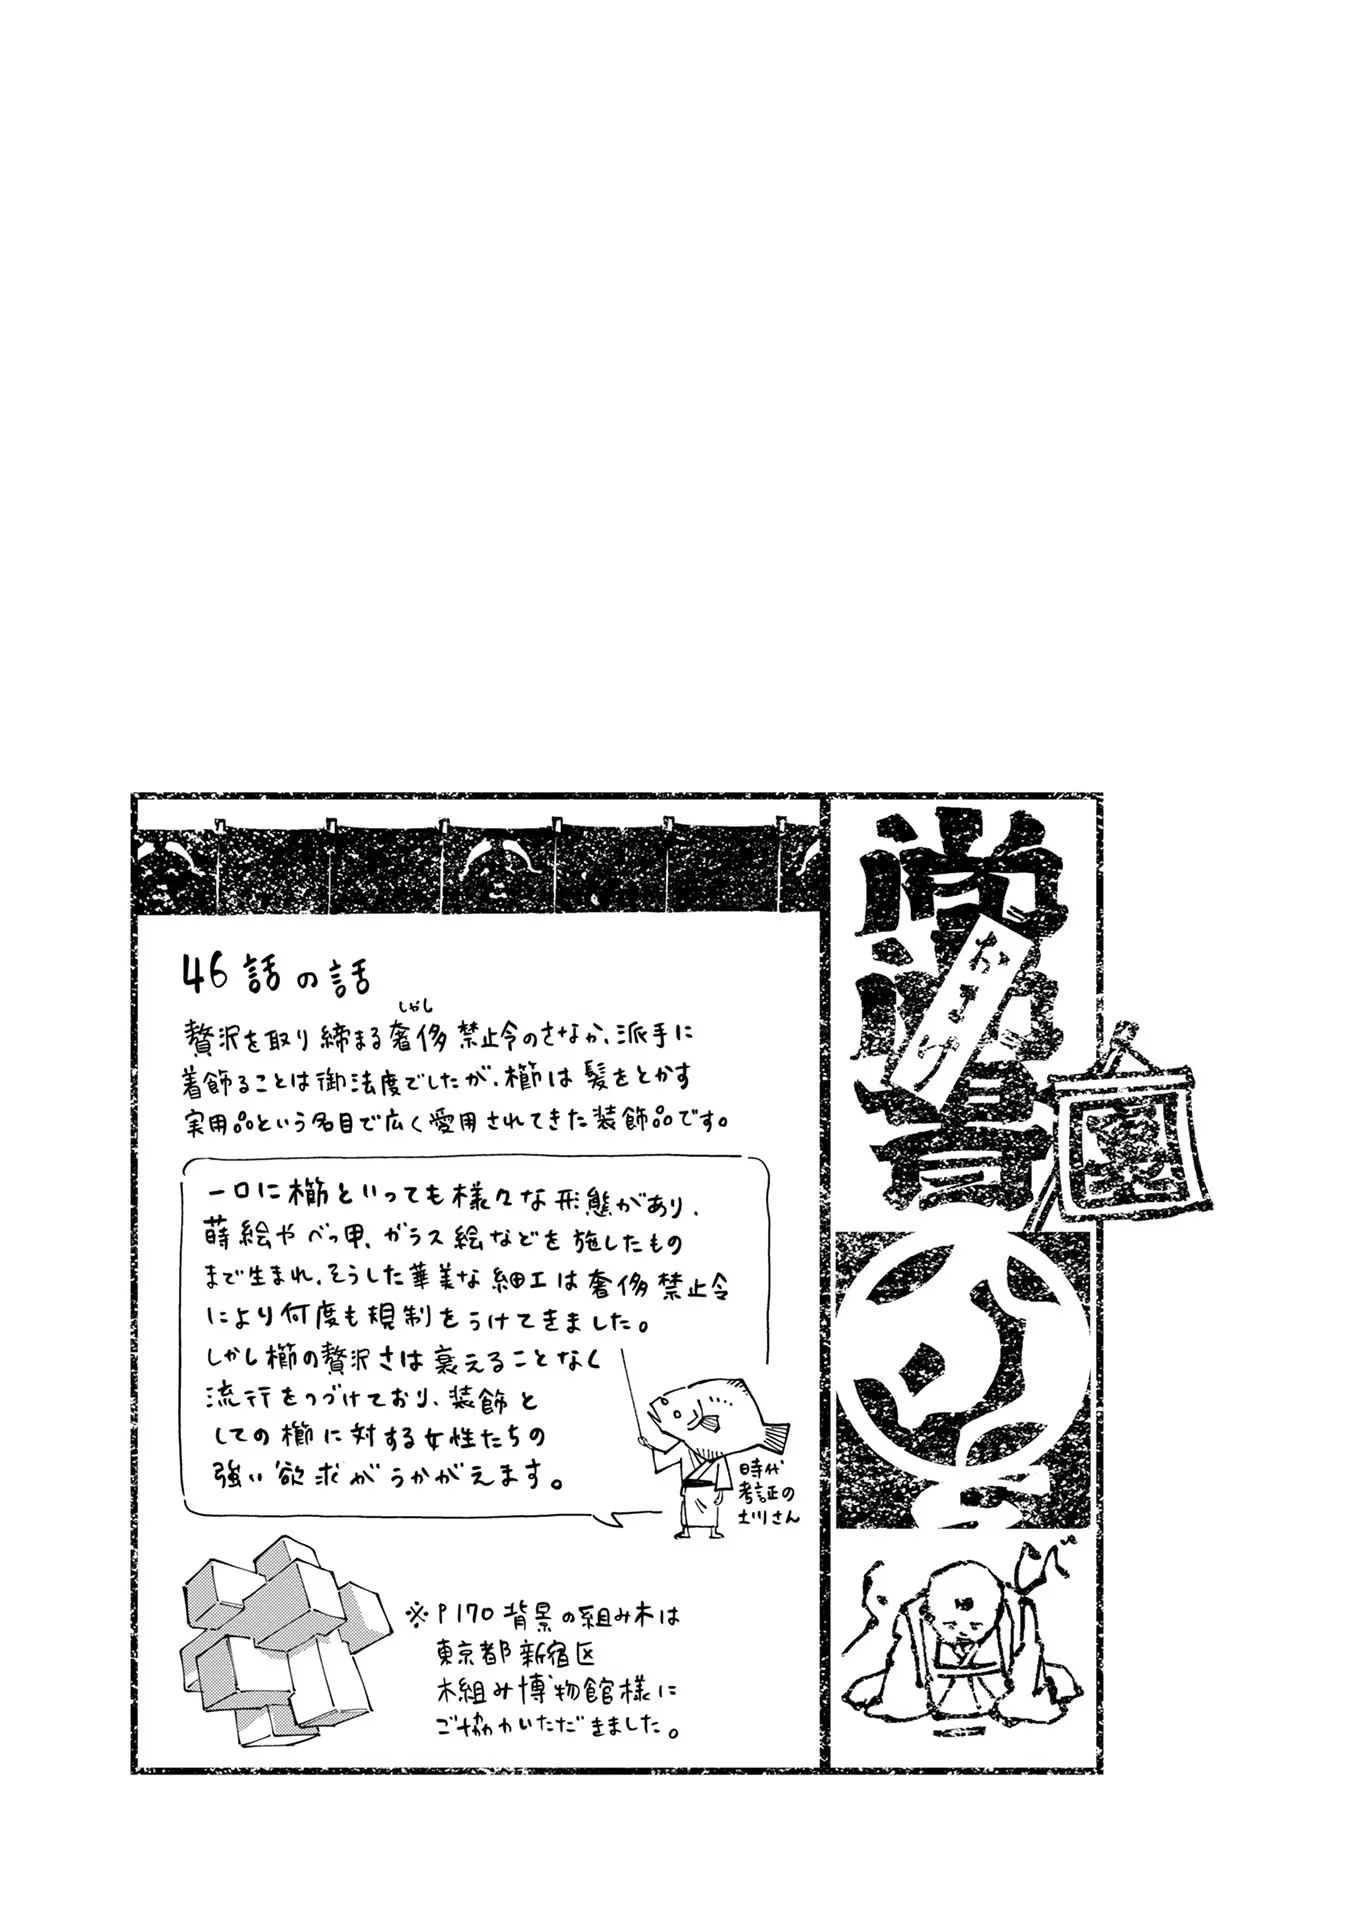 46話の話
しゃし
贅沢を取り締まる奢侈禁止令のさなか、派手に
着飾ることは御法度でしたが、櫛は髪をとかす
実用品という名目で広く愛用されてきた装飾品です。
一口に櫛といっても様々な形態があり、
蒔絵やべっ甲、ガラス絵などを施したもの
まで生まれ、そうした華美な細工は奢侈禁止令
により何度も規制をうけてきました。
しかし櫛の贅沢さは衰えることなく
流行をつづけており、装飾と
しての櫛に対する女性たちの
強い欲求がうかがえます。
時代
考証の
土川さん
※P170背景の組み木は
東京都新宿区
木組み博物館様に
ご協力いただきました。
おまけ